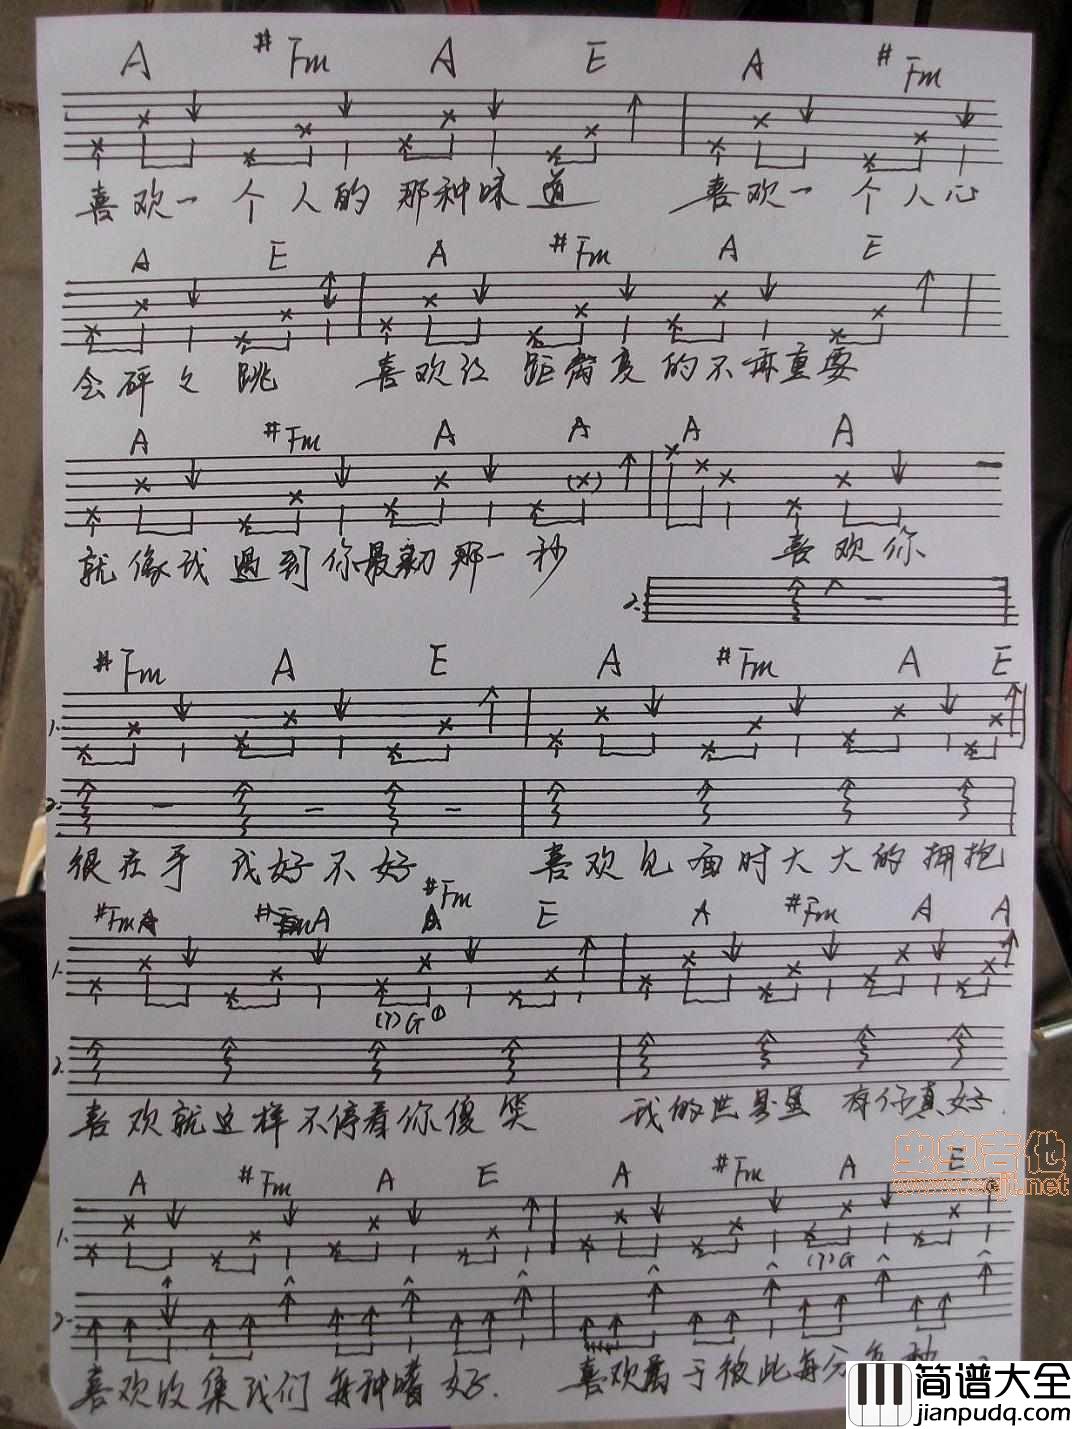 A #Fm A E A #Fm
喜欢一个人的那种味道 喜欢一个人心
A E A #Fm A E
会砰之跳 喜欢没距离变的不再重要
A #Fm A A A A
就像我遇到你最初那一秒 喜欢你
2.
#Fm A E A #Fm A E
1.
2.
很在乎我好不好 喜欢见面时大大的拥抱
#Fm A #Fm
#Fm A E A #Fm A A
1.
(7)G①
2.
喜欢就这样不停看你傻笑 我的世界里有你真好.
A #Fm A E A #Fm A E
虫虫吉他
www.ccjt.net
1.
(7)G
2.
喜欢收集我们每种嗜好. 喜欢属于彼此每分每秒
简谱大全
jianpudq.com